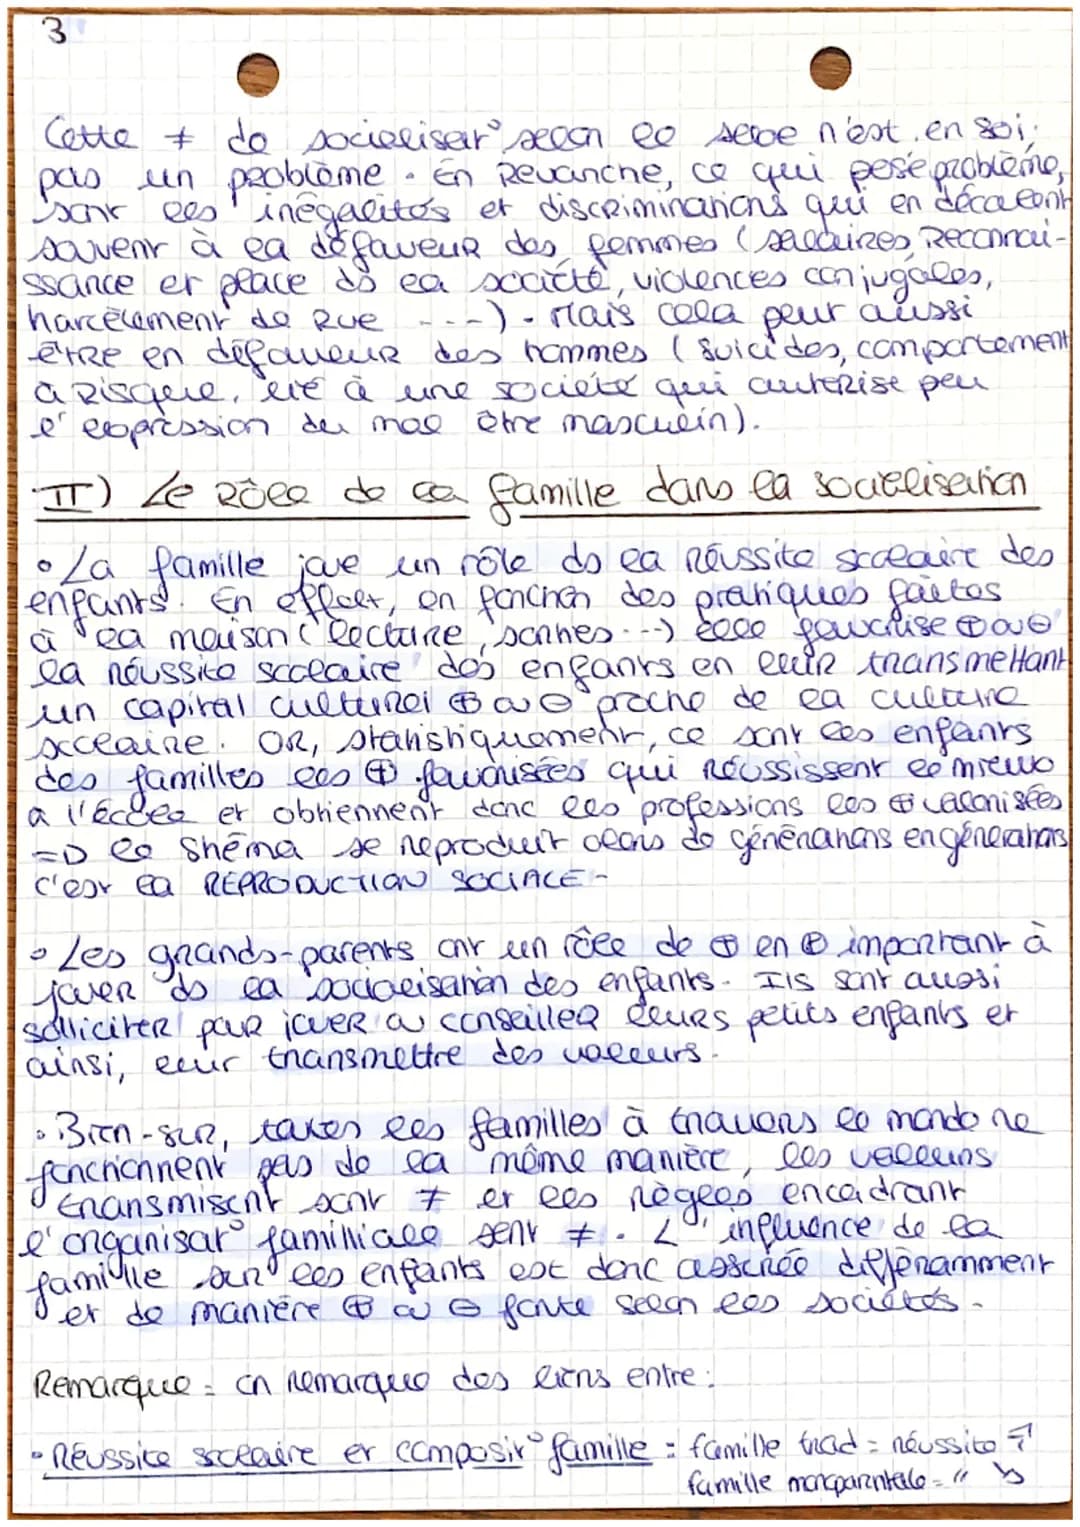 3
Cette ≠ de socialisat° selon le sexe n'est, en soi,
pas un problème. En Revanche, ce qui pose problème,
sont les inégalités et discriminations qui en découlent
souvent à la défaveur des femmes (salaires, Reconnai-
ssance et place ds la société, violences conjugales,
harcèlement de Rue ...). Mais cela peut aussi
être en défaveur des hommes (suicides, comportement
à Risque, lié à une société qui autorise peu
l'expression du mal être masculin).
II) Le Rôle de la famille dans la socialisation
• La famille joue un rôle ds la réussite scolaire des
enfants. En effet, en fonction des pratiques faites
à la maison (lecture, sorties...) elle favorise ⊕ ou ⊖
la réussite scolaire des enfants en leur transmettant
un capital culturel ⊕ ou ⊖ proche de la culture
scolaire. OR, statistiquement, ce sont les enfants
des familles les ⊕ favorisées qui réussissent le mieux
à l'école et obtiennent donc les professions les ⊕ valorisées
=> le shéma se reproduit alors de générations en générations
c'est la REPRODUCTION SOCIALE.
• Les grands-parents ont un rôle de ⊕ en ⊕ important à
jouer ds la socialisation des enfants. Ils sont aussi
solliciter pour jouer ou conseiller leurs petits enfants et
ainsi, leur transmettre des valeurs.
• Bien-sur, toutes les familles à travers le monde ne
fonctionnent pas de la même manière, les valeurs
transmisent sont ≠ et les règles encadrant
l'organisat° familliale sont ≠. L'influence de la
famille sur les enfants est donc assurée différamment
et de manière ⊕ ou ⊖ forte selon les sociétés.
Remarque : on remarque des liens entre :
• Réussite scolaire et composit° famille : famille trad = réussite ↗
famille monoparentale = " ↘